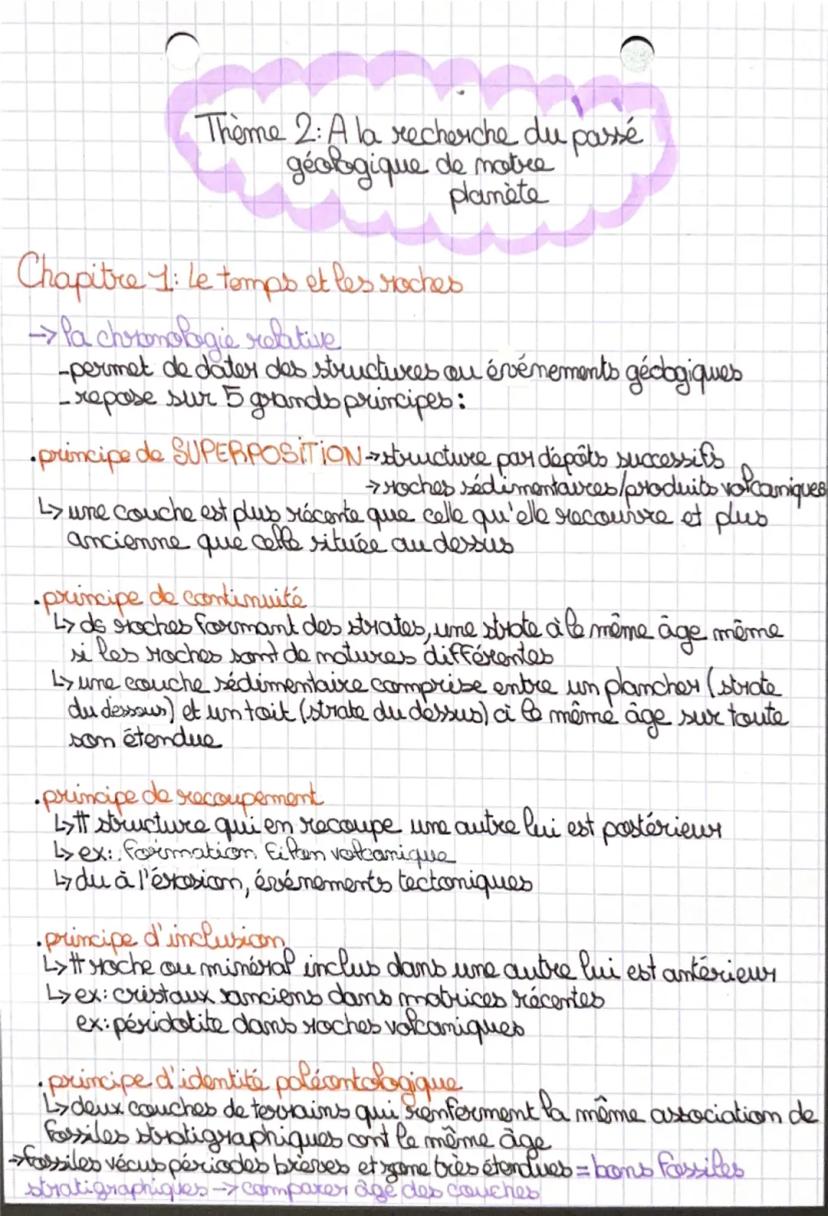 Thème 2: A la recherche du passé
géologique de notre
planète
Chapitre 1: le temps et les roches
→ la chronologie relative
-permet de dater des structures ou événements géologiques
- repose sur 5 grands principes:
.principe de SUPERPOSITION→structure par dépôts successifs
→roches sédimentaires/produits volcaniques
↳ une couche est plus récente que celle qu'elle recouvre et plus
ancienne que celle située au dessus
.principe de continuité
↳ ds roches formant des strates, une strate à le même âge même
si les roches sont de natures différentes
↳ une couche sédimentaire comprise entre un plancher (strate
du dessous) et un toit (strate du dessus) à le même âge sur toute
son étendue
.principe de recoupement
↳ tt structure qui en recoupe une autre lui est postérieur
↳ ex: formation filon volcanique
↳ du à l'érosion, événements tectoniques
.principe d'inclusion
↳ tt roche ou minéral inclus dans une autre lui est antérieur
↳ ex: cristaux anciens dans matrices récentes
ex: péridotite dans roches volcaniques
.principe d'identité paléontologique
↳ deux couches de terrains qui renferment la même association de
fossiles stratigraphiques ont le même âge
→fossiles vécus périodes brèves et zone très étendues = bons fossiles
stratigraphiques → comparer âge des couches